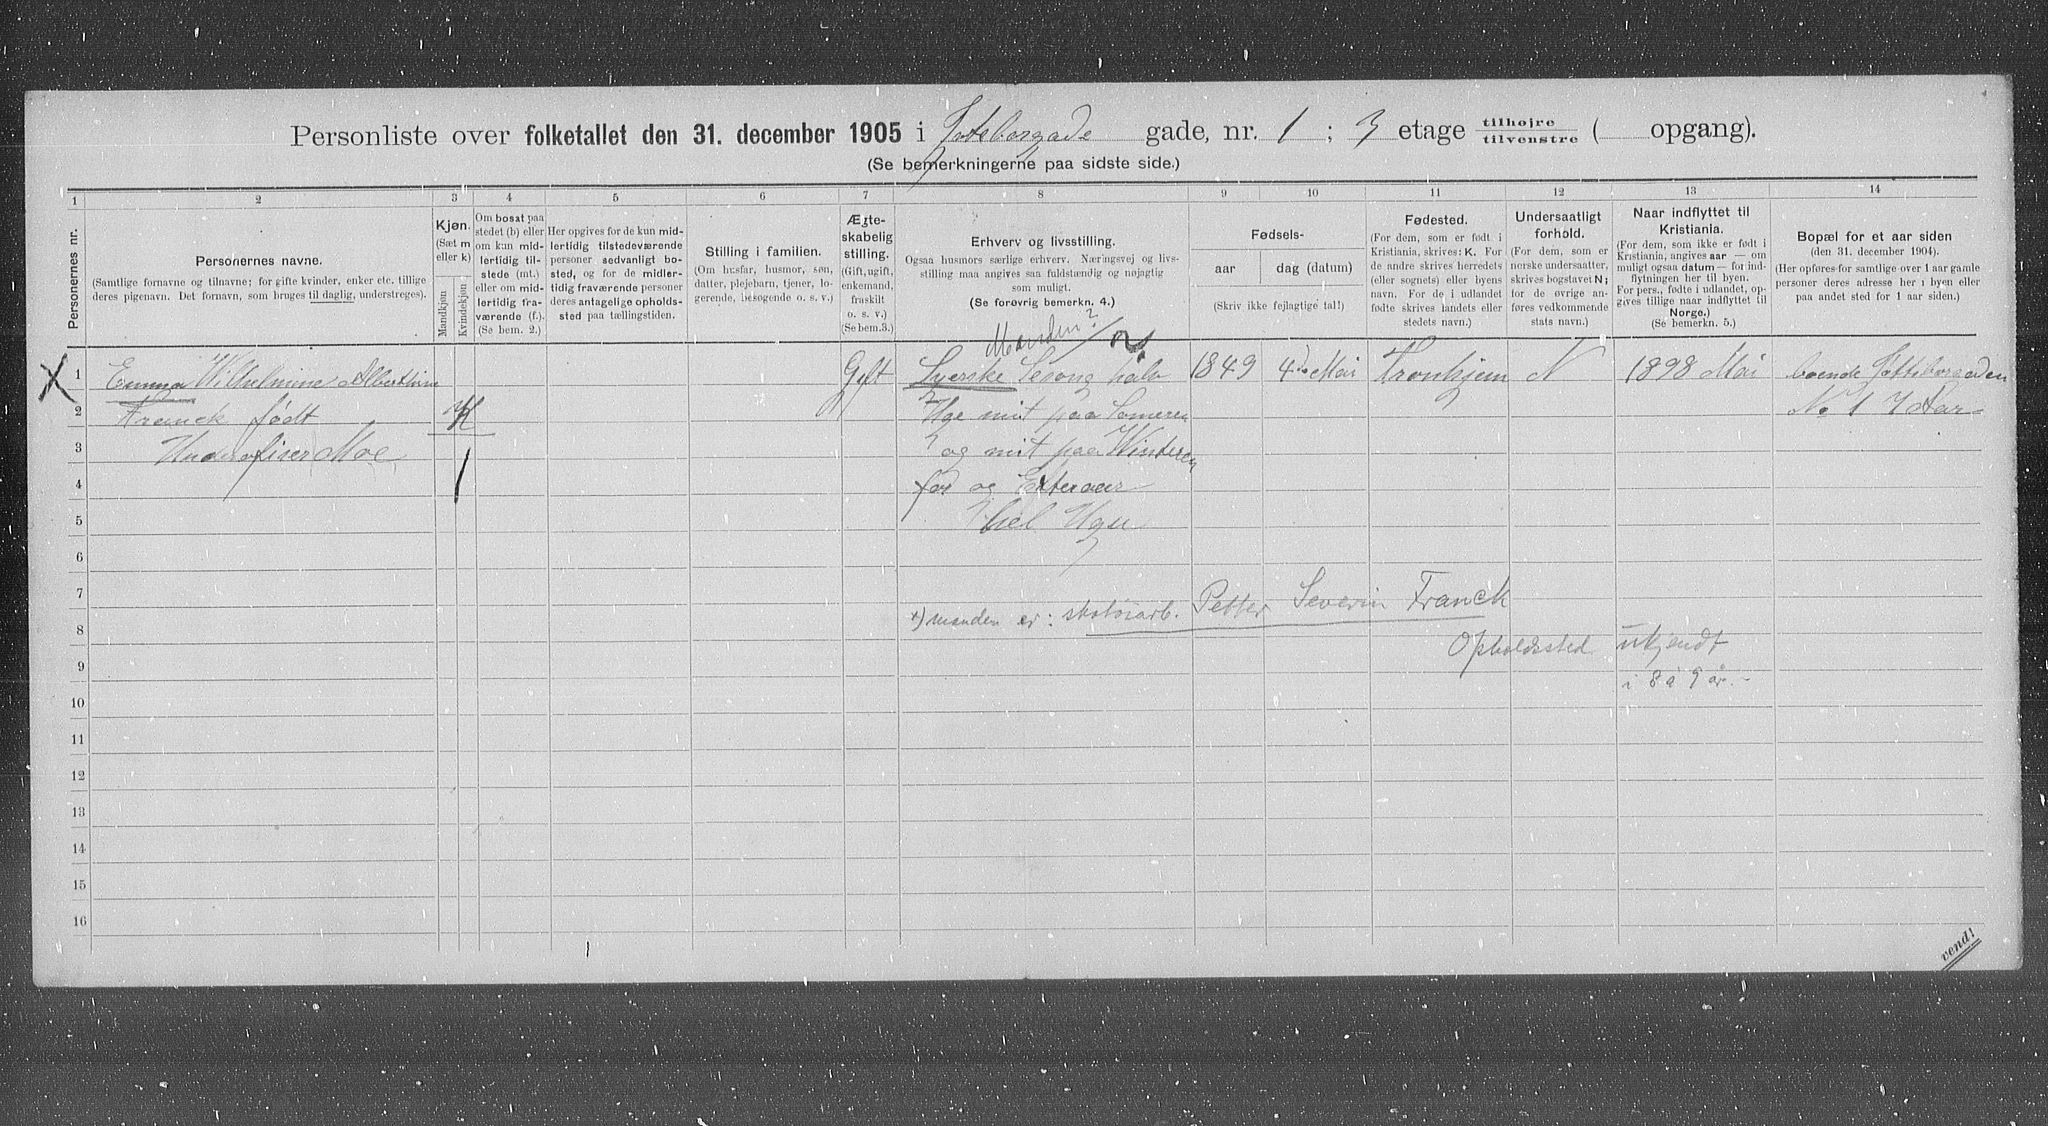 Personliste over folketallet den 31. december 1905 i Göteborgade gade, nr. 1 ; 3 etage tilhøjre tilvenstre ( opgang).
(Se bemerkningerne paa sidste side.)
1 2 3 4 5 6 7 8 9 10 11 12 13 14
Personernes nr.
Personernes navne.
(Samtlige fornavne og tilnavne; for gifte kvinder, enker etc. tillige
deres pigenavn. Det fornavn, som bruges til daglig, understreges).
Kjøn.
(Sæt m
eller k)
Mandkjøn
Kvindekjøn
Om bosat paa
stedet (b) eller
om kun mid-
lertidig til-
stede (mt.)
eller om mid-
lertidig fra-
værende (f.).
(Se bem. 2.)
Her opgives for de kun mid-
lertidig tilstedeværende
personer sedvanligt bo-
sted, og for de midler-
tidig fraværende personer
deres antagelige opholds-
sted paa tællingstiden.
Stilling i familien.
(Om husfar, husmor, søn,
datter, plejebarn, tjener, lo-
gerende, besøgende o. s. v.)
Ægte-
skabelig
stilling.
(Gift, ugift,
enkemand,
fraskilt
o. s. v.)
(Se bem. 3.)
Erhverv og livsstilling.
Ogsaa husmors særlige erhverv. Næringsvej og livs-
stilling maa angives saa fuldstændig og nøjagtig
som muligt.
(Se forøvrig bemerkn. 4.)
Fødsels-
aar
dag (datum)
(Skriv ikke fejlagtige tal!)
Fødested.
(For dem, som er født i
Kristiania, skrives: K. For
de andre skrives herredets
(eller sognets) eller byens
navn. For de i udlandet
fødte skrives landets eller
stedets navn.)
Undersaatligt
forhold.
(For dem, som er
norske undersaatter,
skrives bogstavet N;
for de øvrige an-
føres vedkommende
stats navn.)
Naar indflyttet til
Kristiania.
(For dem, som ikke er født i
Kristiania, angives aar — om
muligt ogsaa datum — for ind-
flytningen her til byen.
For pers., fødte i udlandet, op-
gives tillige naar indflyttet til
Norge.)
(Se bemerkn. 5.)
Bopæl for et aar siden
(den 31. december 1904).
(Her opføres for samtlige over 1 aar gamle
personer deres adresse her i byen eller
paa andet sted for 1 aar siden.)
Manden?
1 Emma Wilhelmine Albertine Gift Syerske Sesong halv 1849 4 Mai Tronhjem N 1898 Mai boende Göteborgaden
2 Franck født K Uge mit paa Someren No 1 7 Aar
3 Underofiser Moe og mit paa Winteren
4 før og Efter aar
5 hel Uge
6
7 x) manden er: skotøiarb. Petter Severin Franck
8 Opholdssted ukjendt
9 i 8 à 9 år.-
10
11
12
13
14
15
16
vend!